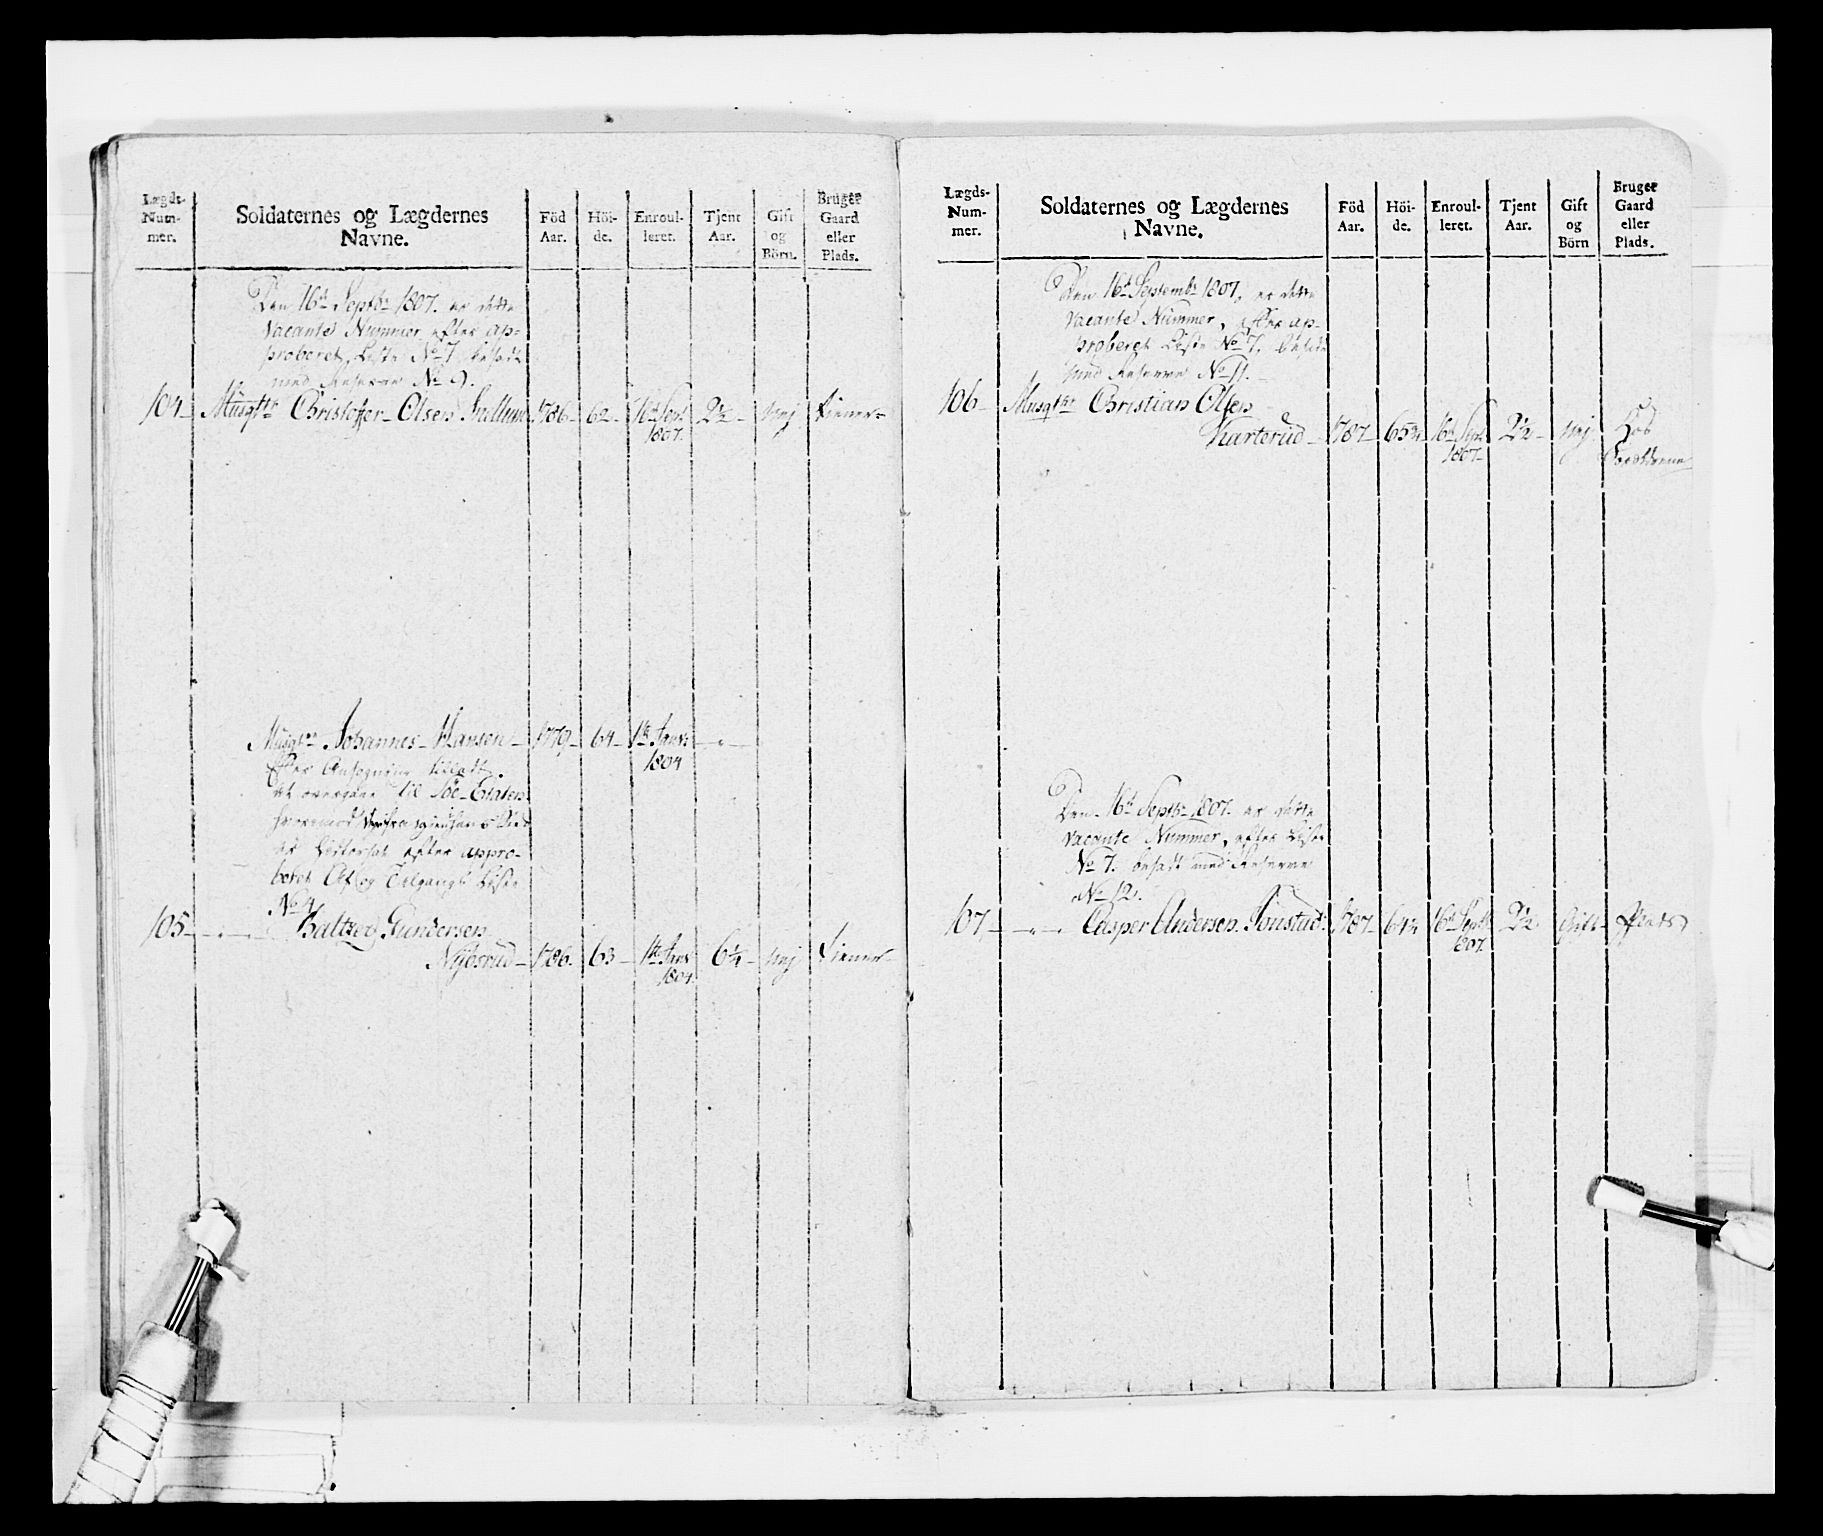 Lægds-
Num-
mer.
Soldaternes og Lægdernes
Navne.
Föd
Aar.
Höi-
de.
Enroul-
leret.
Tjent
Aar.
Gift
og
Börn.
Bruger
Gaard
eller
Plads.
Den 16de Septbr 1807. er dette
vacante Nummer efter ap-
proberet Liste No 7 besadt
med Reserve No 9.
104 Musqtr Christoffer Olsen 1786 62 16de Sept 1807. 2½ Nej Tiener
Musqtr Johannes Hansen 1779 64 1te Janr 1804
efter Ansøgning tilladt
at overgaae til Söe-Etaten
efter appro-
beret Af og Tilgangs Liste
No 4
105 Baltzer Gundersen
Nybsrud 1786. 63 1te Janr 1804. 6¼ Nej Tiener
Lægds-
Num-
mer.
Soldaternes og Lægdernes
Navne.
Föd
Aar.
Höi-
de.
Enroul-
leret.
Tjent
Aar.
Gift
og
Börn
Bruger
Gaard
eller
Plads.
Den 16de Septembr 1807. er dette
vacante Nummer, efter ap-
proberet Liste No 7. besadt
med Reserve No 11.
106 Musqtr Christian Olsen
Karterud 1787 65½ 16de Sept 1807 2½ Nej Hos
Forældrene
Den 16de Septbr 1807. er dette
vacante Nummer, efter Liste
No 7. besadt med Reserve
No 12.
107 Casper Andersen Tonstad 1787 64½ 16de Septbr 1807. 2½ Gift Plads